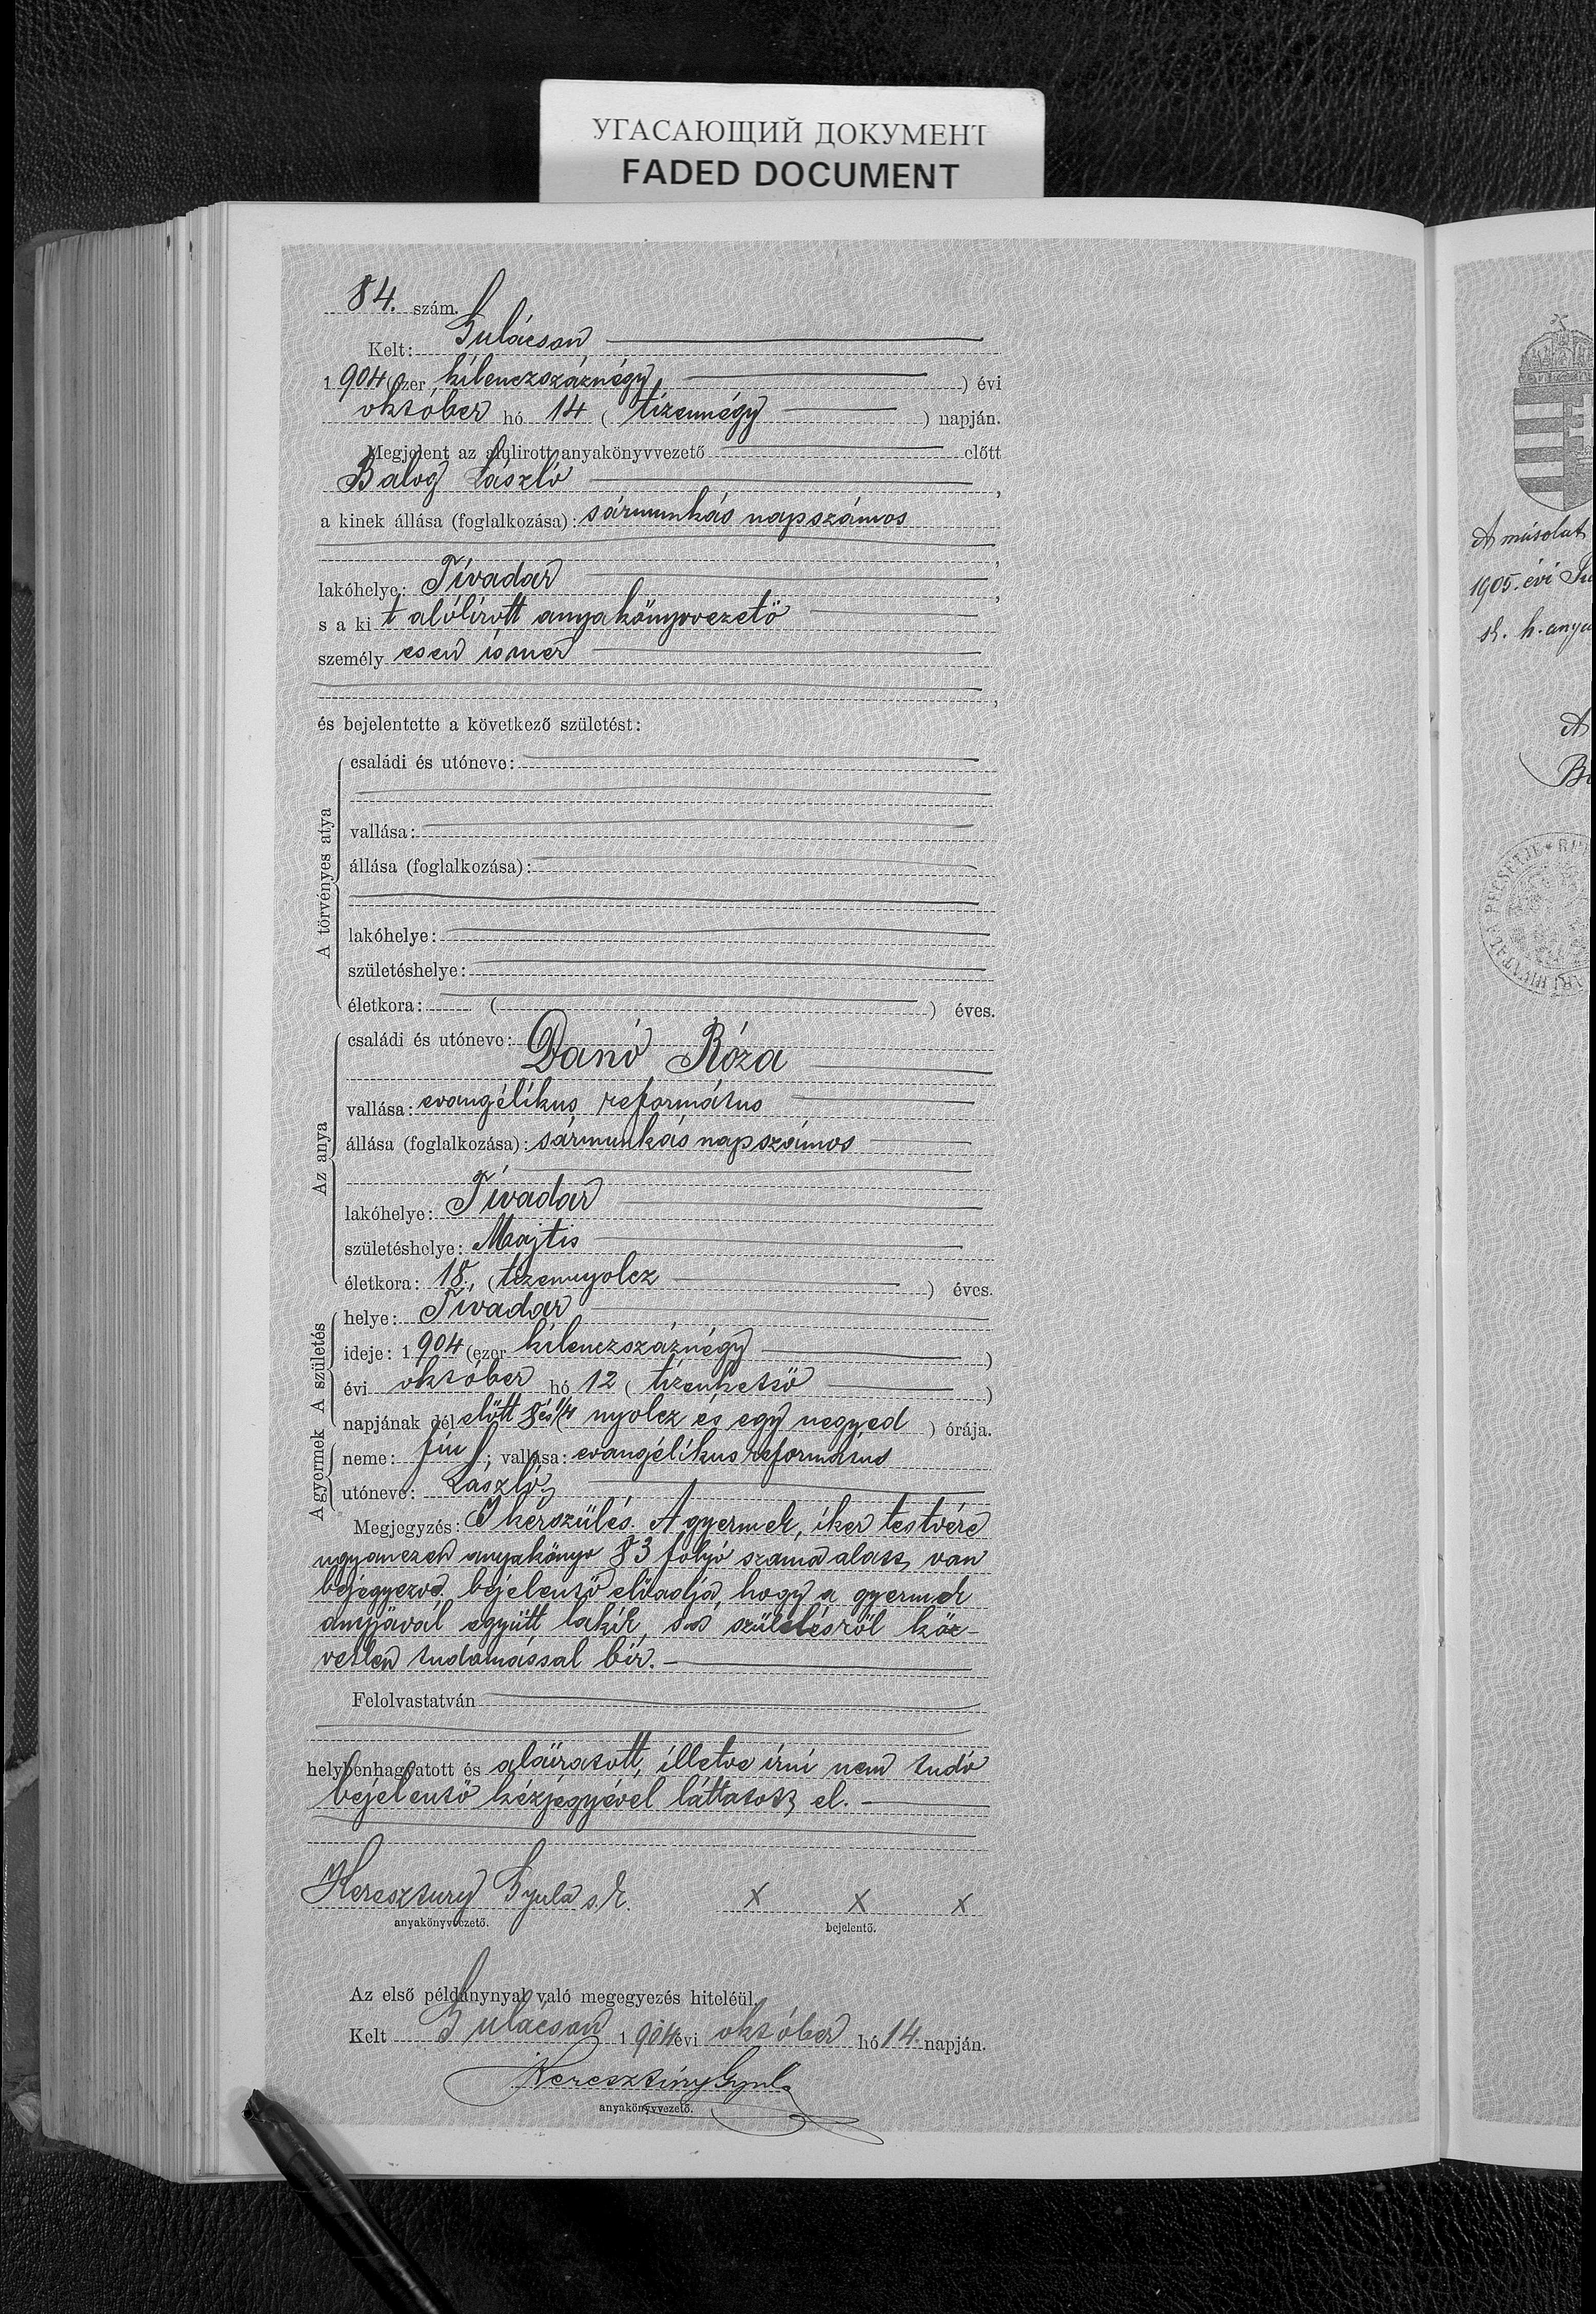 УГАСАЮЩИЙ ДОКУМЕНТ
FADED DOCUMENT
84. szám.
Kelt: Gulácson
1904 (ezer kilenczszáznégy ) évi
október hó 14 ( tizennégy ) napján.
Megjelent az alulirott anyakönyvvezető előtt
Balog László ,
a kinek állása (foglalkozása): sármunkás napszámos
,
lakóhelye: Tivadar ,
s a ki t alólirott anyakönyvvezető
személy esen ismer
,
és bejelentette a következő születést:
A törvényes atya
családi és utóneve:
vallása:
állása (foglalkozása):
lakóhelye:
születéshelye:
életkora: ( ) éves.
Az anya
családi és utóneve: Danó Róza
vallása: evangélikus református
állása (foglalkozása): sármunkás napszámos
lakóhelye: Tivadar
születéshelye: Majtis
életkora: 18., (tizennyolcz ) éves.
A születés
helye: Tivadar
ideje: 1904 (ezer kilenczszáznégy )
évi október hó 12 ( tizenkettő )
napjának dél előtt 8 és 1/4 ( nyolcz és egy negyed ) órája.
A gyermek
neme: fiu ; vallása: evangélikus református
utóneve: László
Megjegyzés: Ikerszülés. A gyermek, iker testvére
ugyanezen anyakönyv 83 folyó száma alatt van
bejegyezve. bejelentő előadja, hogy a gyermek
anyjával együtt lakik, s a születésről köz-
vetlen tudomással bir. -
Felolvastatván
helybenhagyatott és aláiratott, illetve irni nem tudó
bejelentő kézjegyével láttatott el. -
Keresztury Gyula s.k. x x x
anyakönyvvezető. bejelentő.
Az első példánynyal való megegyezés hiteléül.
Kelt Gulácson 1904 évi október hó 14. napján.
Keresztúry Gyula
anyakönyvvezető.
A másolat
1905. évi
sk. h. anya
A